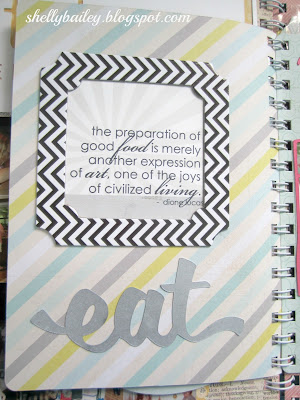 shellybailey.blogspot.com
the preparation of
good food is merely
another expression
of art, one of the joys
of civilized living.
- dione lucas
eat